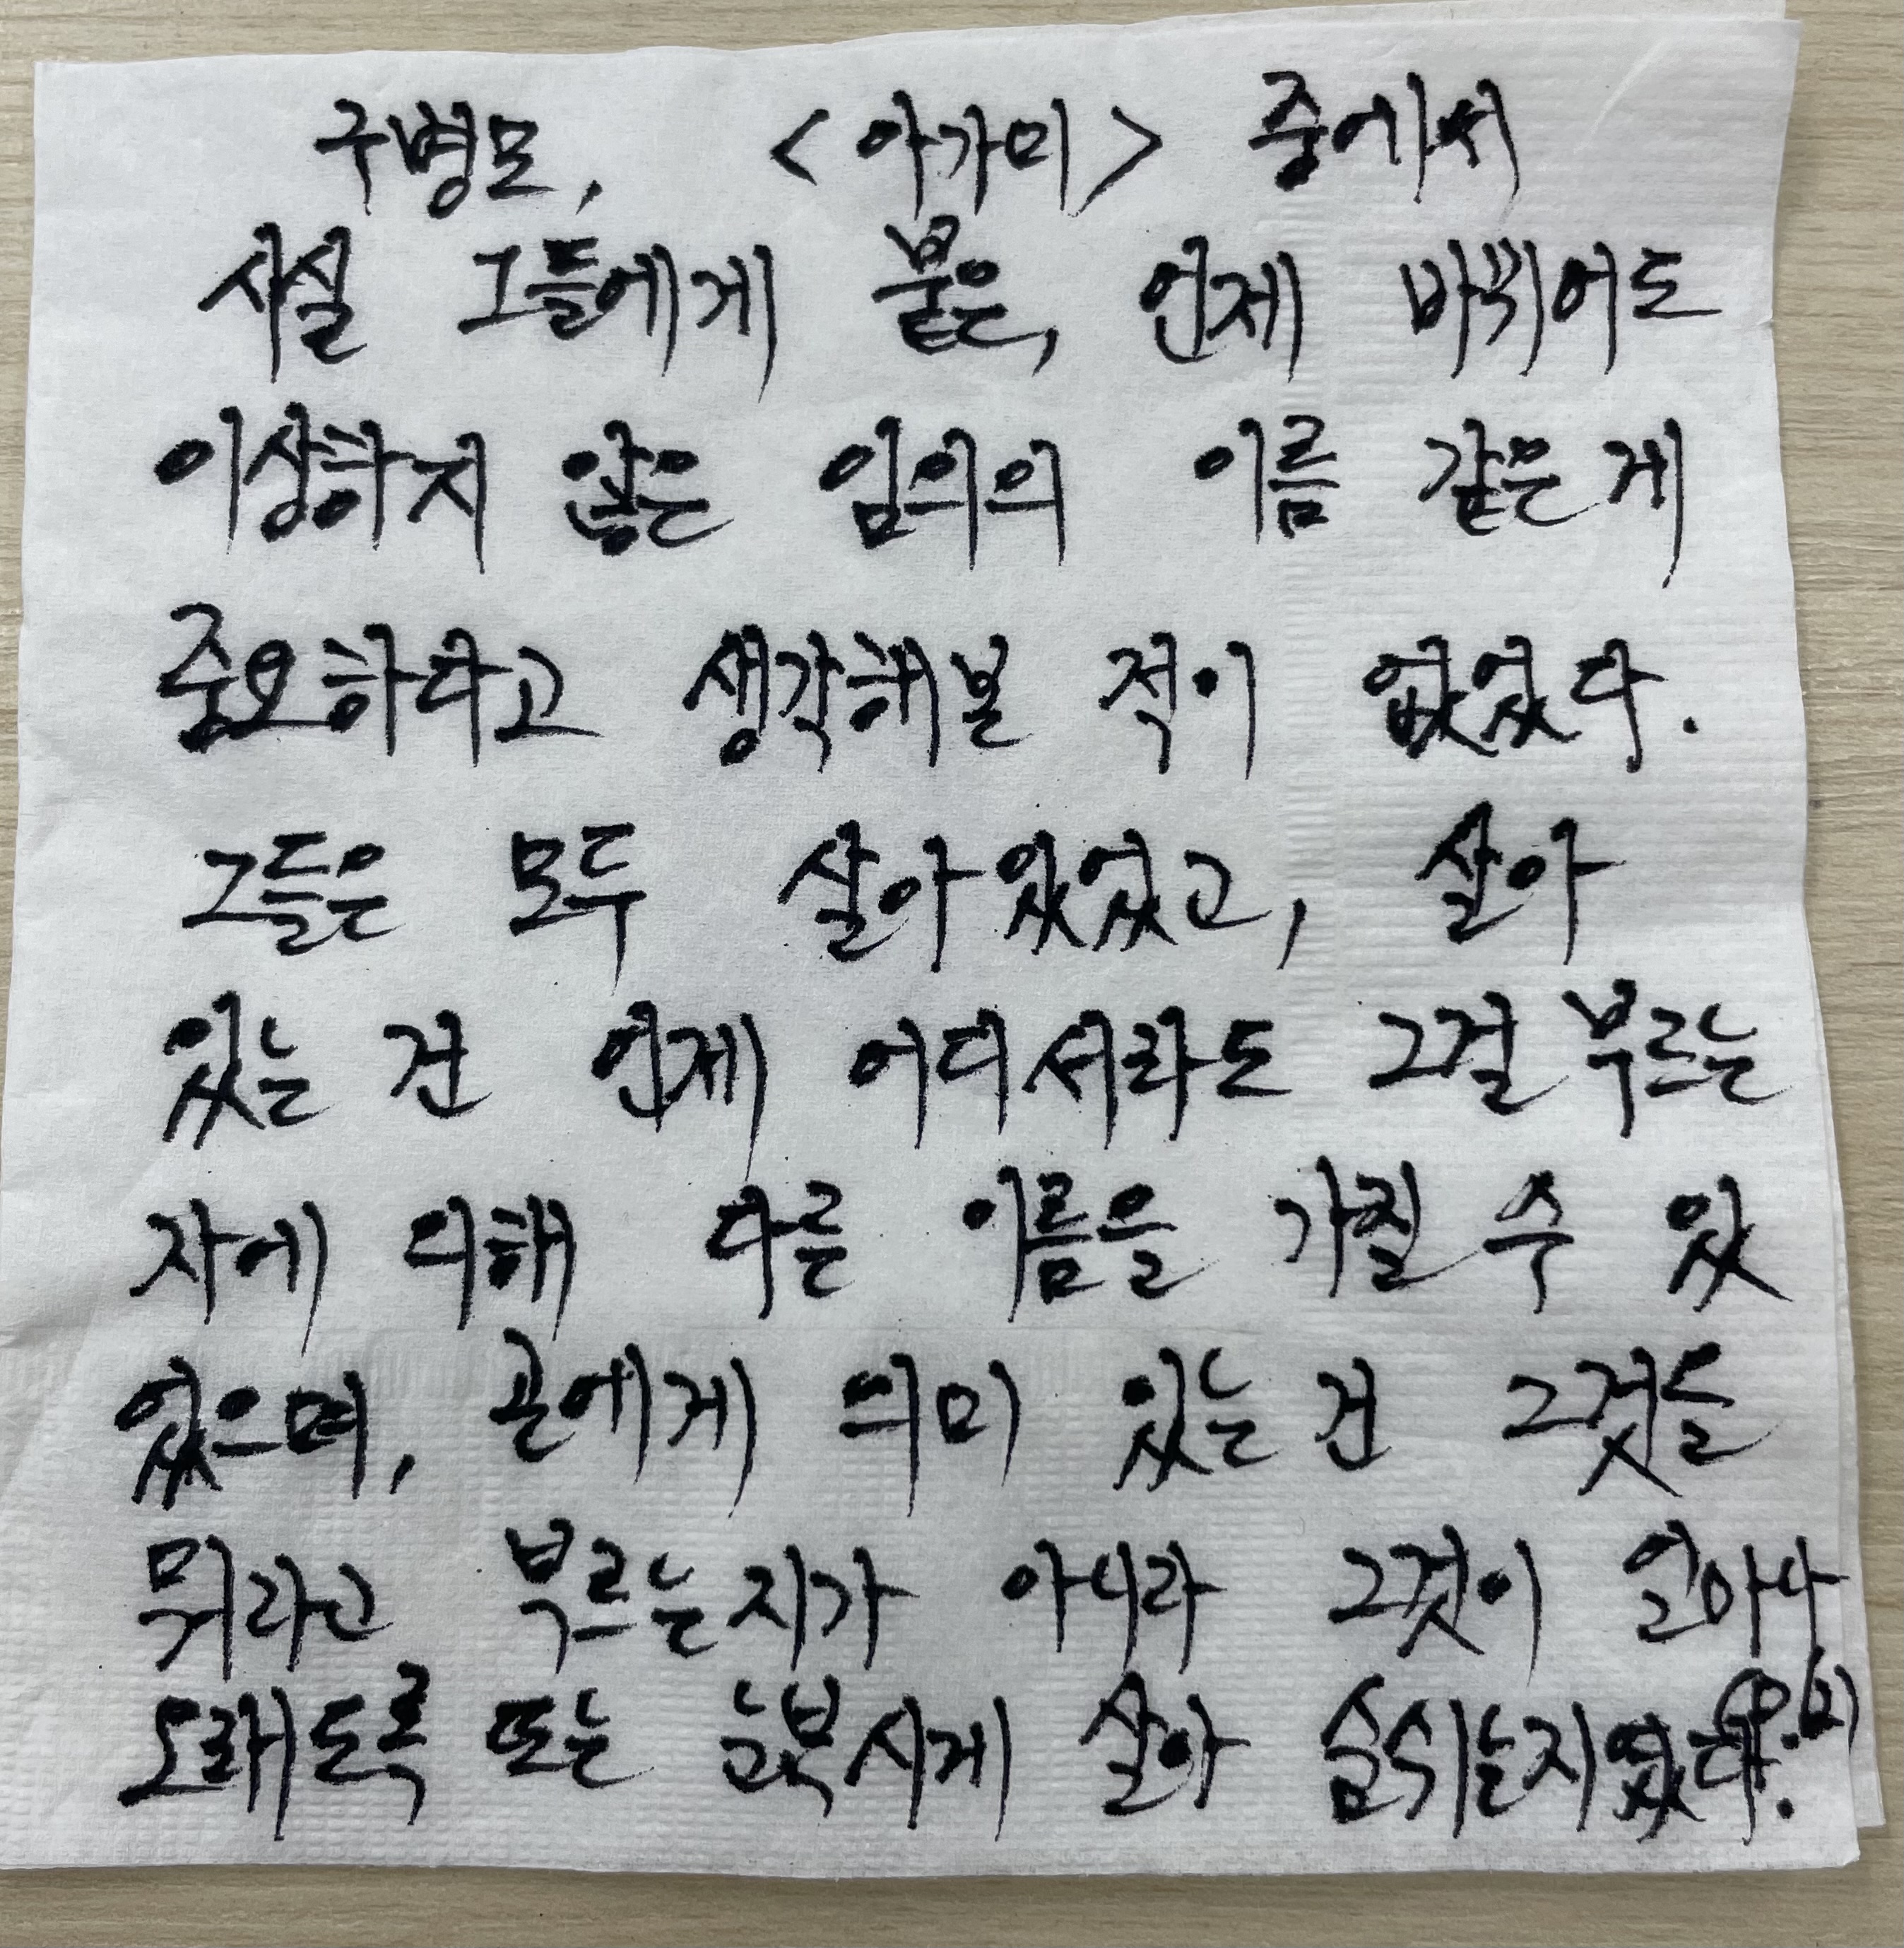 구병모, <아가미> 중에서
사실 그들에게 붙은, 언제 바뀌어도
이상하지 않은 임의의 이름 같은 게
중요하다고 생각해본 적이 없었다.
그들은 모두 살아 있었고, 살아
있는 건 언제 어디서라도 그걸 부르는
자에 의해 다른 이름을 가질 수 있
었으며, 곤에게 의미 있는 건 그것을
뭐라고 부르는지가 아니라 그것이 얼마나
오래도록 또는 눈부시게 살아 숨쉬는지였다.